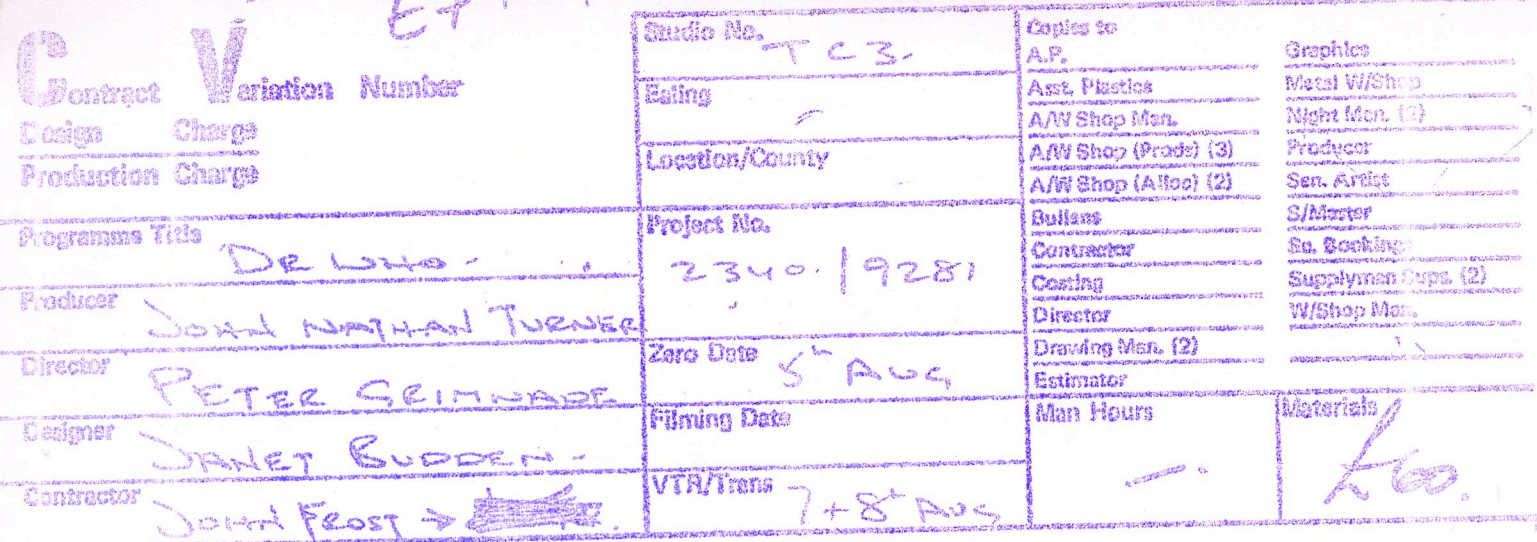 Contract Variation Number
Design Charge
Production Charge
Programme Title
DR WHO -
Producer
JOHN NATHAN TURNER
Director
PETER GRIMWADE
Designer
JANET BUDDEN -
Contractor
JOHN FROST →
Studio No.
TC3.
Ealing
-
Location/County
Project No.
2340. / 9281
Zero Date
5th AUG
Filming Date
VTR/Trans
7+8th AUG
Copies to
A.P.
Asst. Plastics
A/W Shop Man.
A/W Shop (Prods) (3)
A/W Shop (Alloc) (2)
Bullens
Contractor
Costing
Director
Drawing Man. (2)
Estimator
Graphics
Metal W/Shop
Night Men. (2)
Producer
Sen. Artist
S/Master
Su. Booking
Supplyman Sups. (2)
W/Shop Man.
Man Hours
-
Materials
£60.